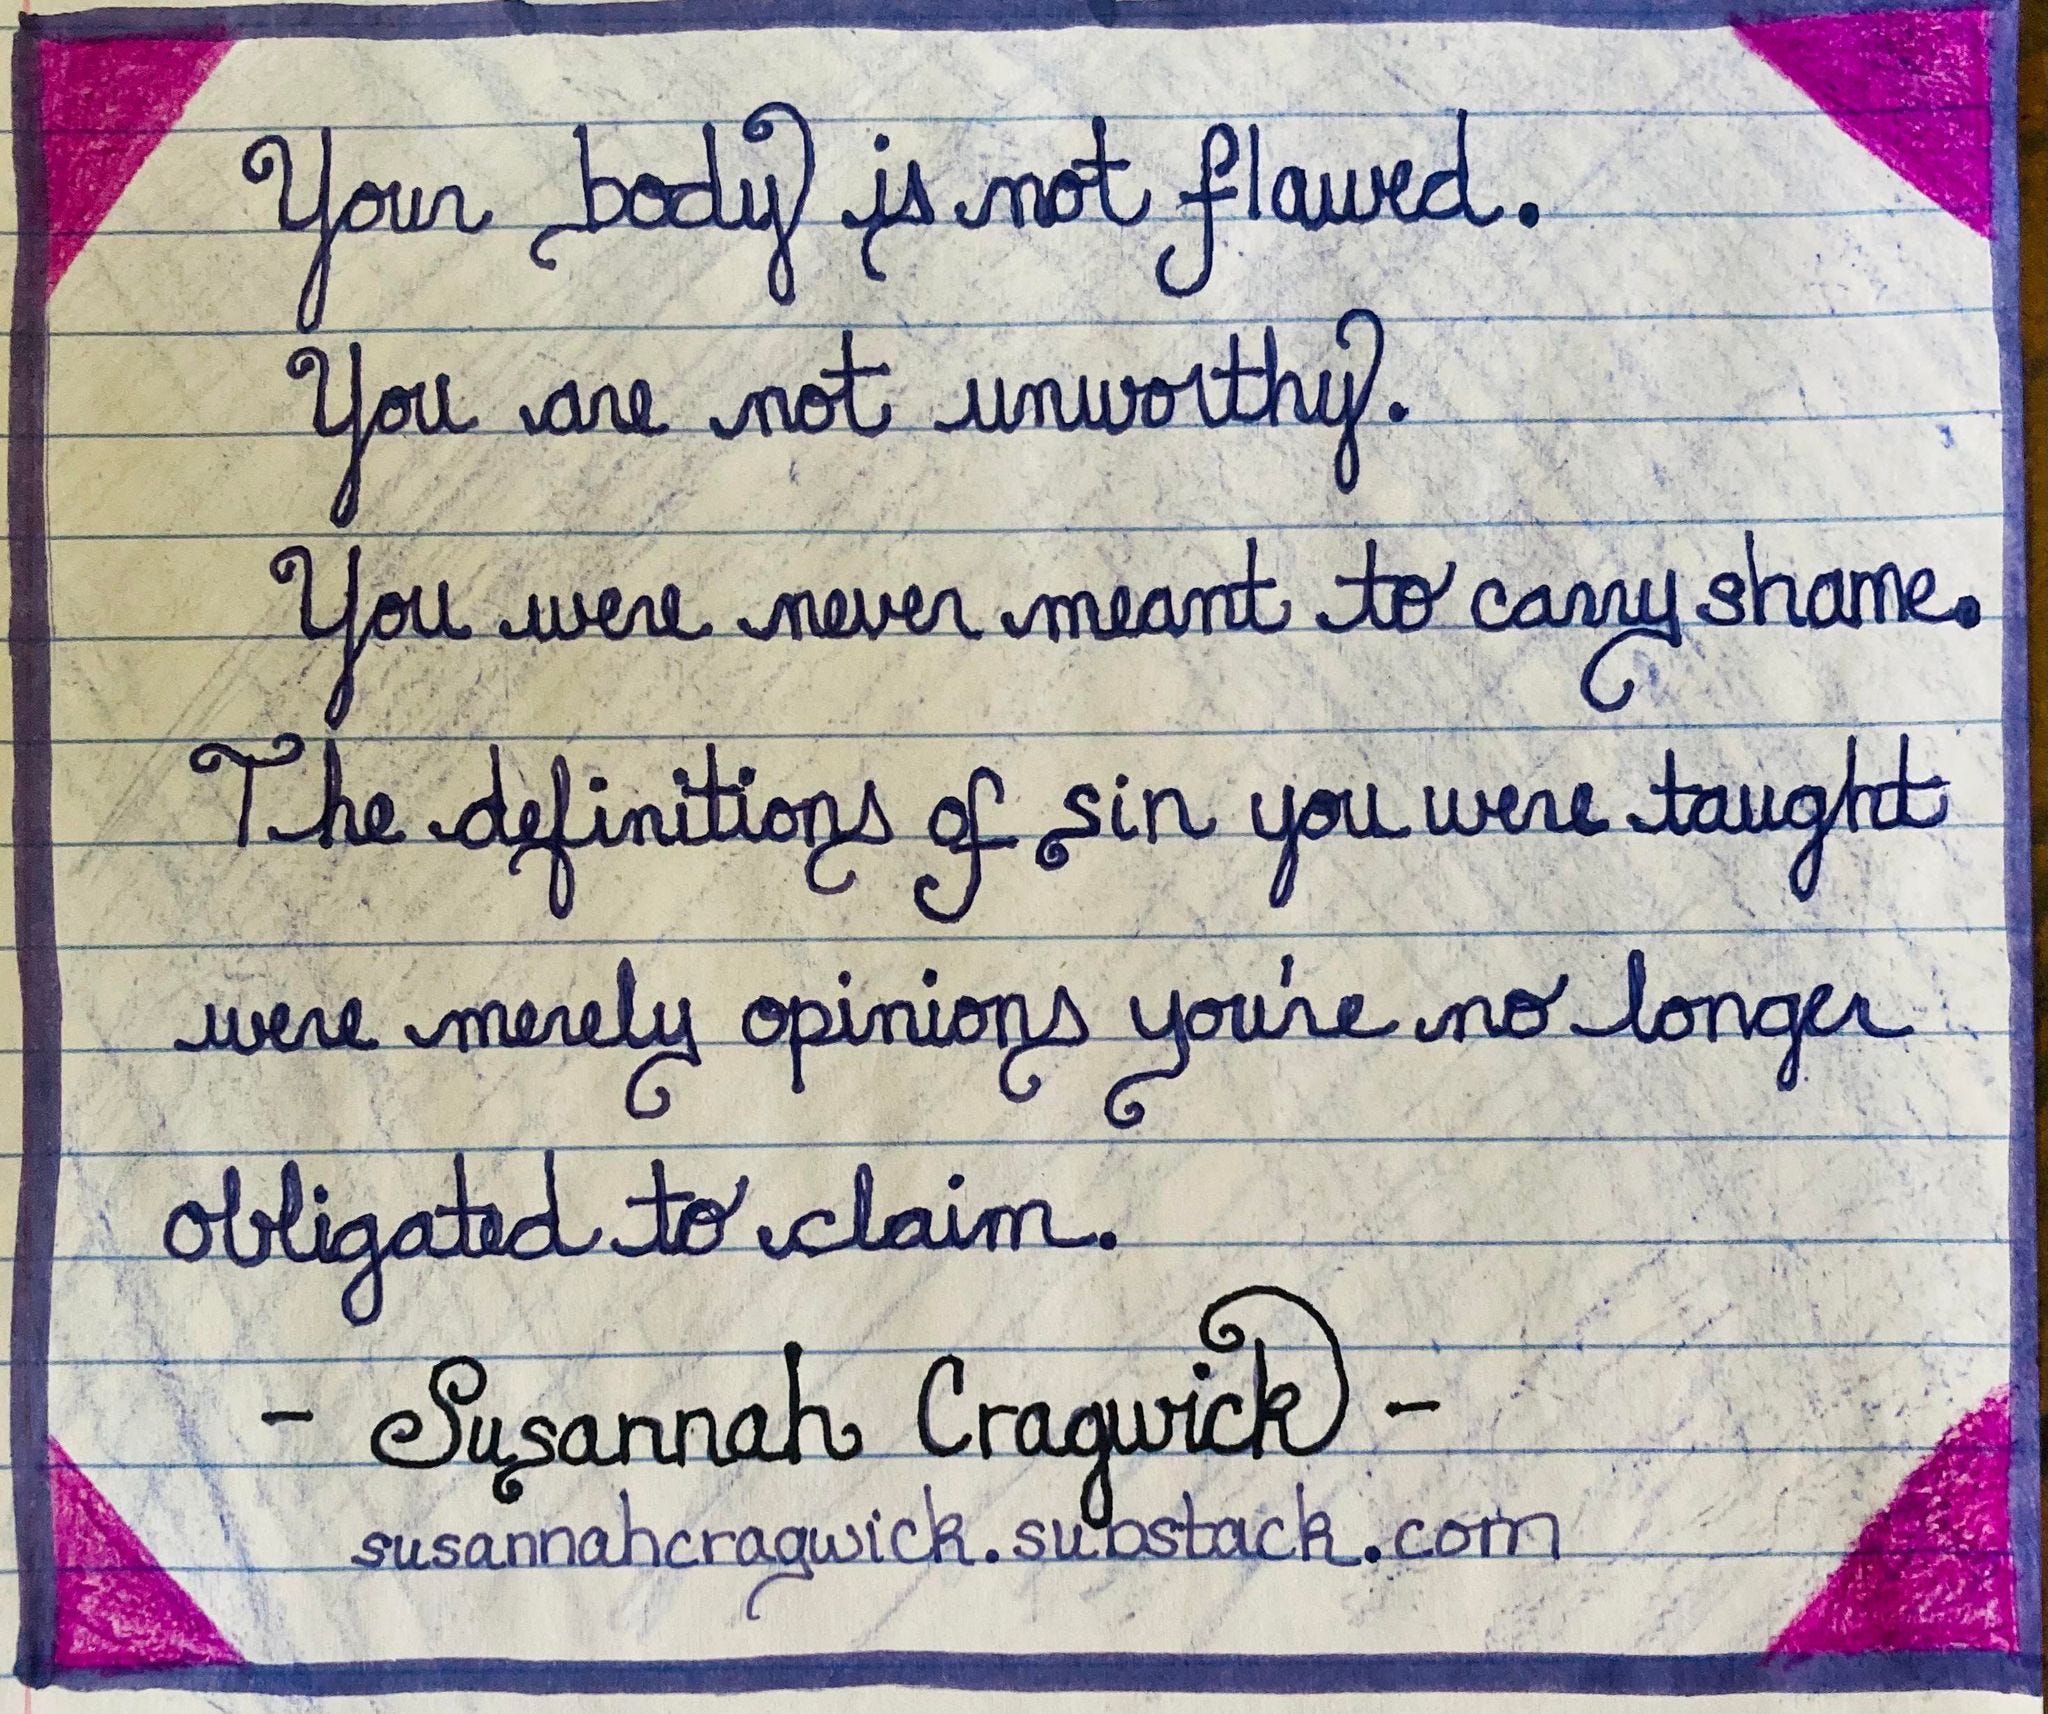 Your body is not flawed.
You are not unworthy.
You were never meant to carry shame.
The definitions of sin you were taught
were merely opinions you're no longer
obligated to claim.
- Susannah Cragwick -
susannahcragwick.substack.com